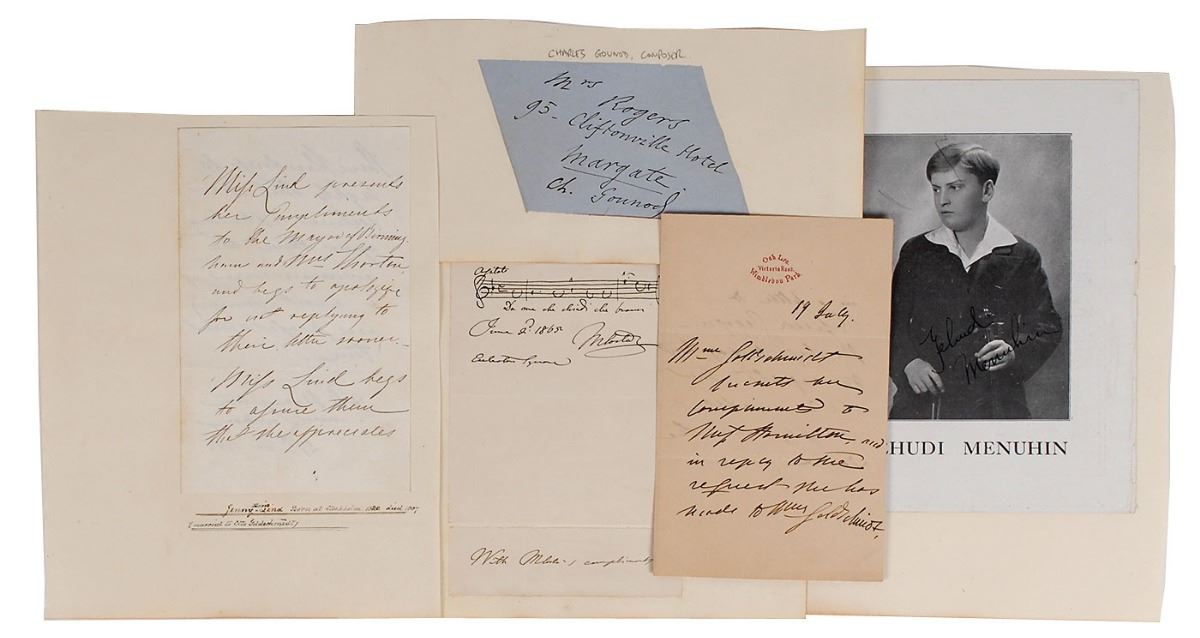 Miss Lind presents
her Compliments
to the Mayor of Birming-
ham and Mrs
and begs to apologize
for not replying to
their letter sooner.
Miss Lind begs
to assure them
that she appreciates
Jenny Lind Born at Stockholm 1820 died 1887
(married to Otto Goldschmidt)
CHARLES GOUNOD, COMPOSER
Mrs Rogers
95- Cliftonville Hotel
Margate
Ch. Gounod
June 2d 1865
Eccleston Square
With compliments
Oak Lea,
Victoria Road,
Wimbledon Park.
19 July.
Mme Goldschmidt
presents her
compliments to
Miss Hamilton, and
in reply to the
request she has
made to Mme Goldschmidt,
Yehudi
Menuhin
EHUDI MENUHIN